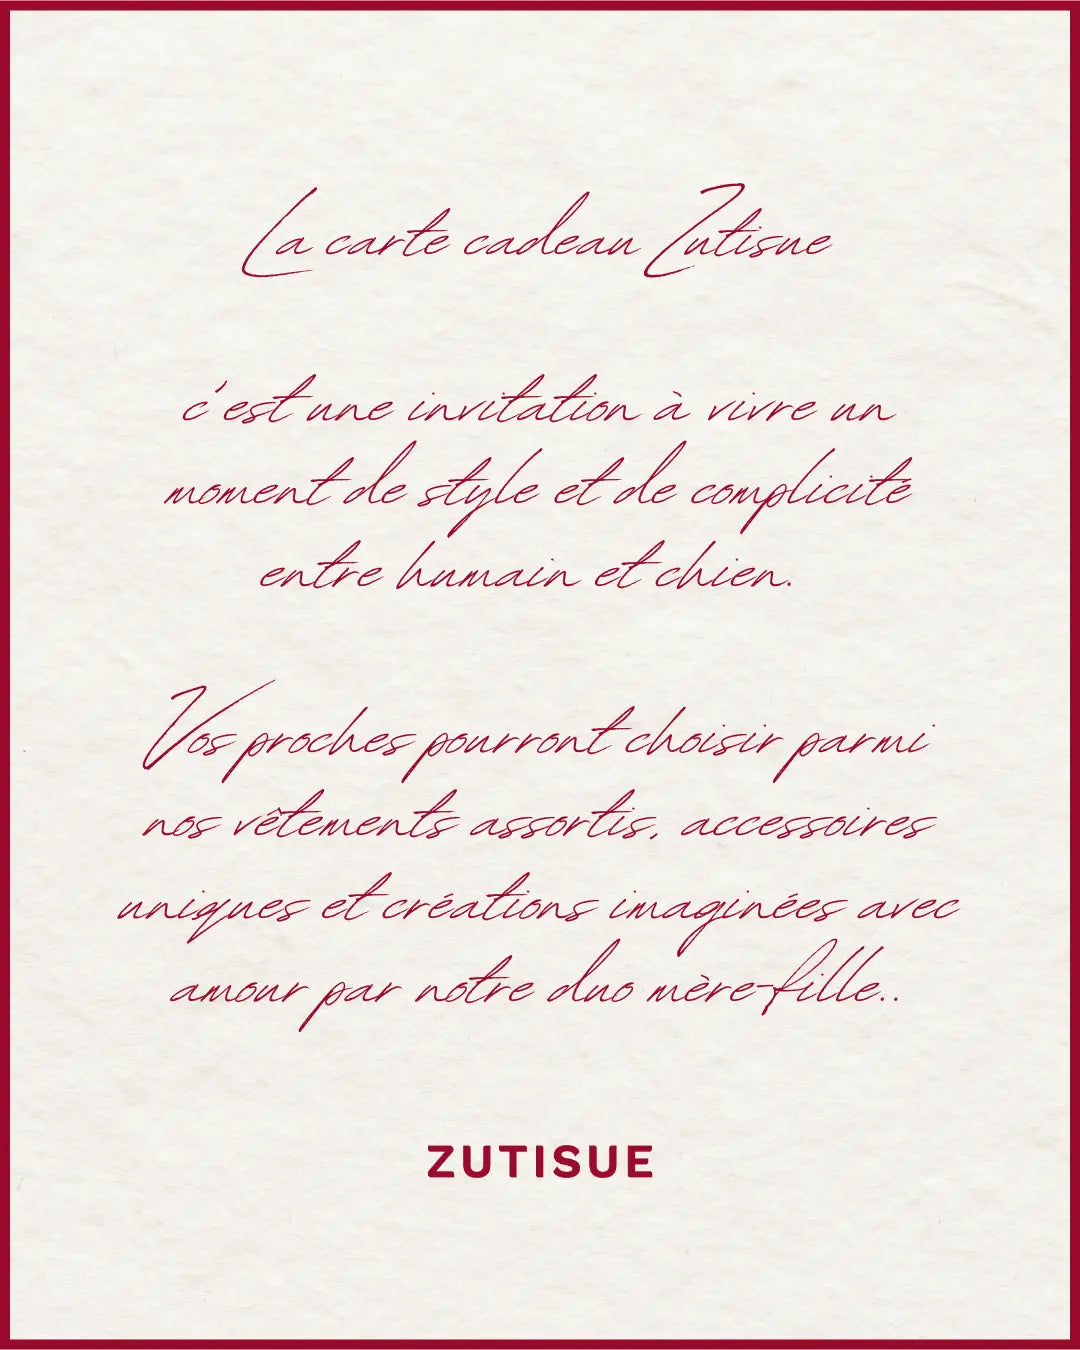 La carte cadeau Zutisue
c'est une invitation à vivre un
moment de style et de complicité
entre humain et chien.
Vos proches pourront choisir parmi
nos vêtements assortis, accessoires
uniques et créations imaginées avec
amour par notre duo mère-fille..
ZUTISUE